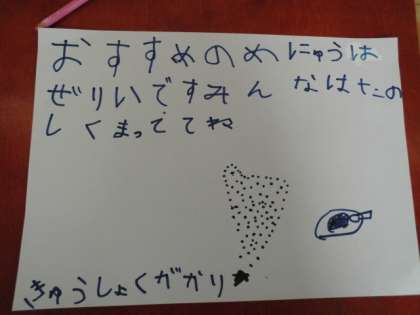 おすすめのめにゅうは
ぜりいですみんなはたの
しくまっててね
きゅうしょくがかり